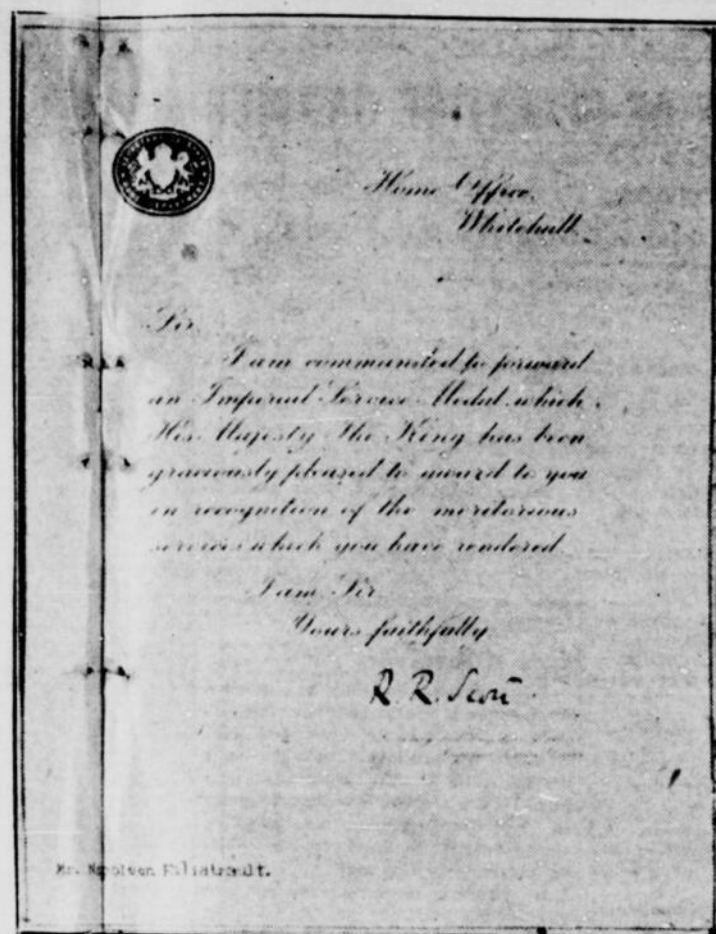 Home Office,
Whitehall.
Sir,
I am commanded to forward
an Imperial Service Medal which
His Majesty The King has been
graciously pleased to award to you
in recognition of the meritorious
services which you have rendered.
I am Sir
Yours faithfully
R. R. Scott
Mr. Napoleon Filiatrault.